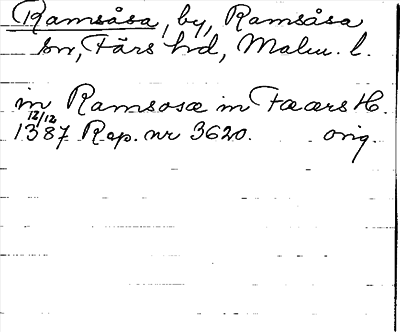 Ramsåsa, by, Ramsåsa
sn, Färs hd, Malm. l.
in Ramsosæ in Fæars H.
12/12
1387 Rep. nr 3620. orig.